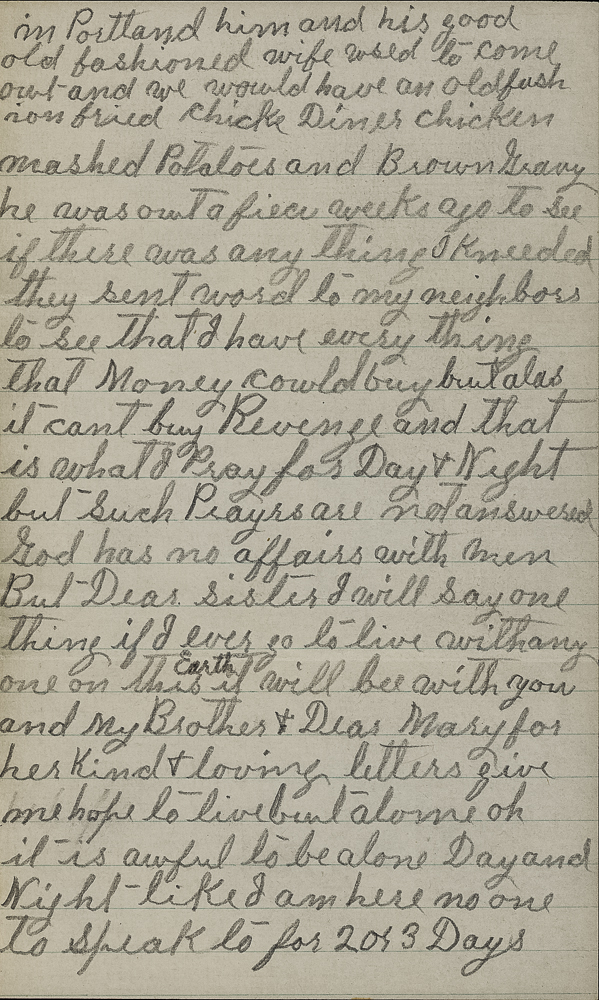 in Portland him and his good
old fashioned wife used to come
out and we would have an oldfash
ion fried chicke Diner chicken
mashed Potatoes and Brown Gravy
he was out a fiew weeks ago to see
if there was any thing I kneeded
they sent word to my neighbors
to see that I have every thing
that Money could buy but alas
it cant buy Revenge and that
is what I Pray for Day & Night
but such Prayrs are not answered
God has no affairs with men
But Dear sister I will say one
thing if I ever go to live with any
one on this Earth it will bee with you
and My Brother & Dear Mary for
her Kind & loving letters give
me hope to live but alone oh
it is awful to be alone Day and
Night like I am here no one
to speak to for 2 or 3 Days